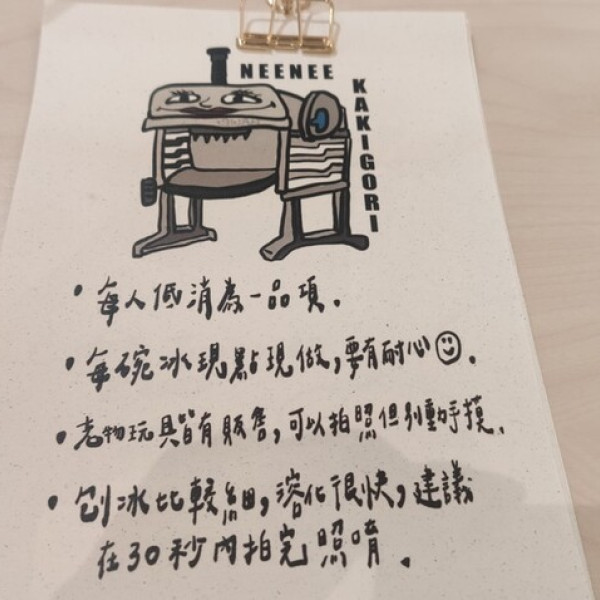 NEENEE
KAKIGORI
• 每人低消為一品項。
• 每碗冰現點現做,要有耐心☺。
• 老物玩具皆有販售,可以拍照但別動手摸。
• 刨冰比較細,溶化很快,建議
在30秒內拍完照唷。